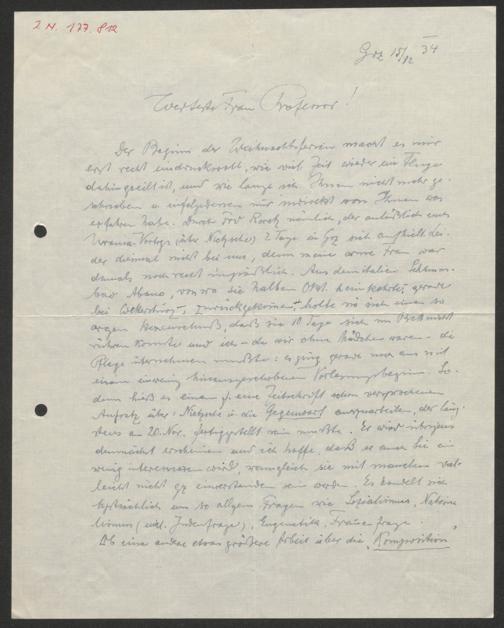 I.N. 177.812
Graz 15/12 34
Werteste Frau Professor!
Der Beginn der Weihnachtsferien macht es mir
erst recht eindrucksvoll, wie viel Zeit wieder im Fluge
dahingeeilt ist, und wie lange ich Ihnen nicht mehr ge-
schrieben u. infolgedessen nur indirekt von Ihnen was
erfahren habe. Durch Prof. nämlich, der anläßlich eines
Urania-Vortrgs (über Nietzsche) 2 Tage in Graz sich aufhielt, lei-
der diesmal nicht bei uns, denn meine arme Frau war
damals noch recht unpäßlich. Aus dem italien. Schlamm-
bad Abano, von wo sie halben Okt. heimkehrte, gerade
bei zurückgekommen, holte sie sich einen so
argen Hexenschuß, daß sie 10 Tage sich im Bett nicht
rühren konnte und ich – da wir ohne Mädchen waren – die
Pflege übernehmen mußte: es ging gerade noch aus mit
einem ein wenig hinausgeschobenen Vorlesungsbeginn. So-
dann hieß es einen f. eine Zeitschrift schon versprochenen
Aufsatz über: Nietzsche u. die Gegenwart auszuarbeiten, der läng-
stens am 20. Nov. fertiggestellt sein mußte. Er wird übrigens
demnächst erscheinen und ich hoffe, daß er auch Sie ein
wenig interessieren wird, wenngleich sie mit manchem viel-
leicht nicht gz einverstanden sein werden. Es handelt sich
hptsächlich um so allgem. Fragen wie Sozialismus, Nationa-
lismus (incl. Judenfrage), Eugenetik, Frauenfrage.
Ob eine andere etwas größere Arbeit über die „Komposition